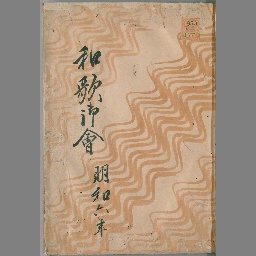 和歌御會
明和六年